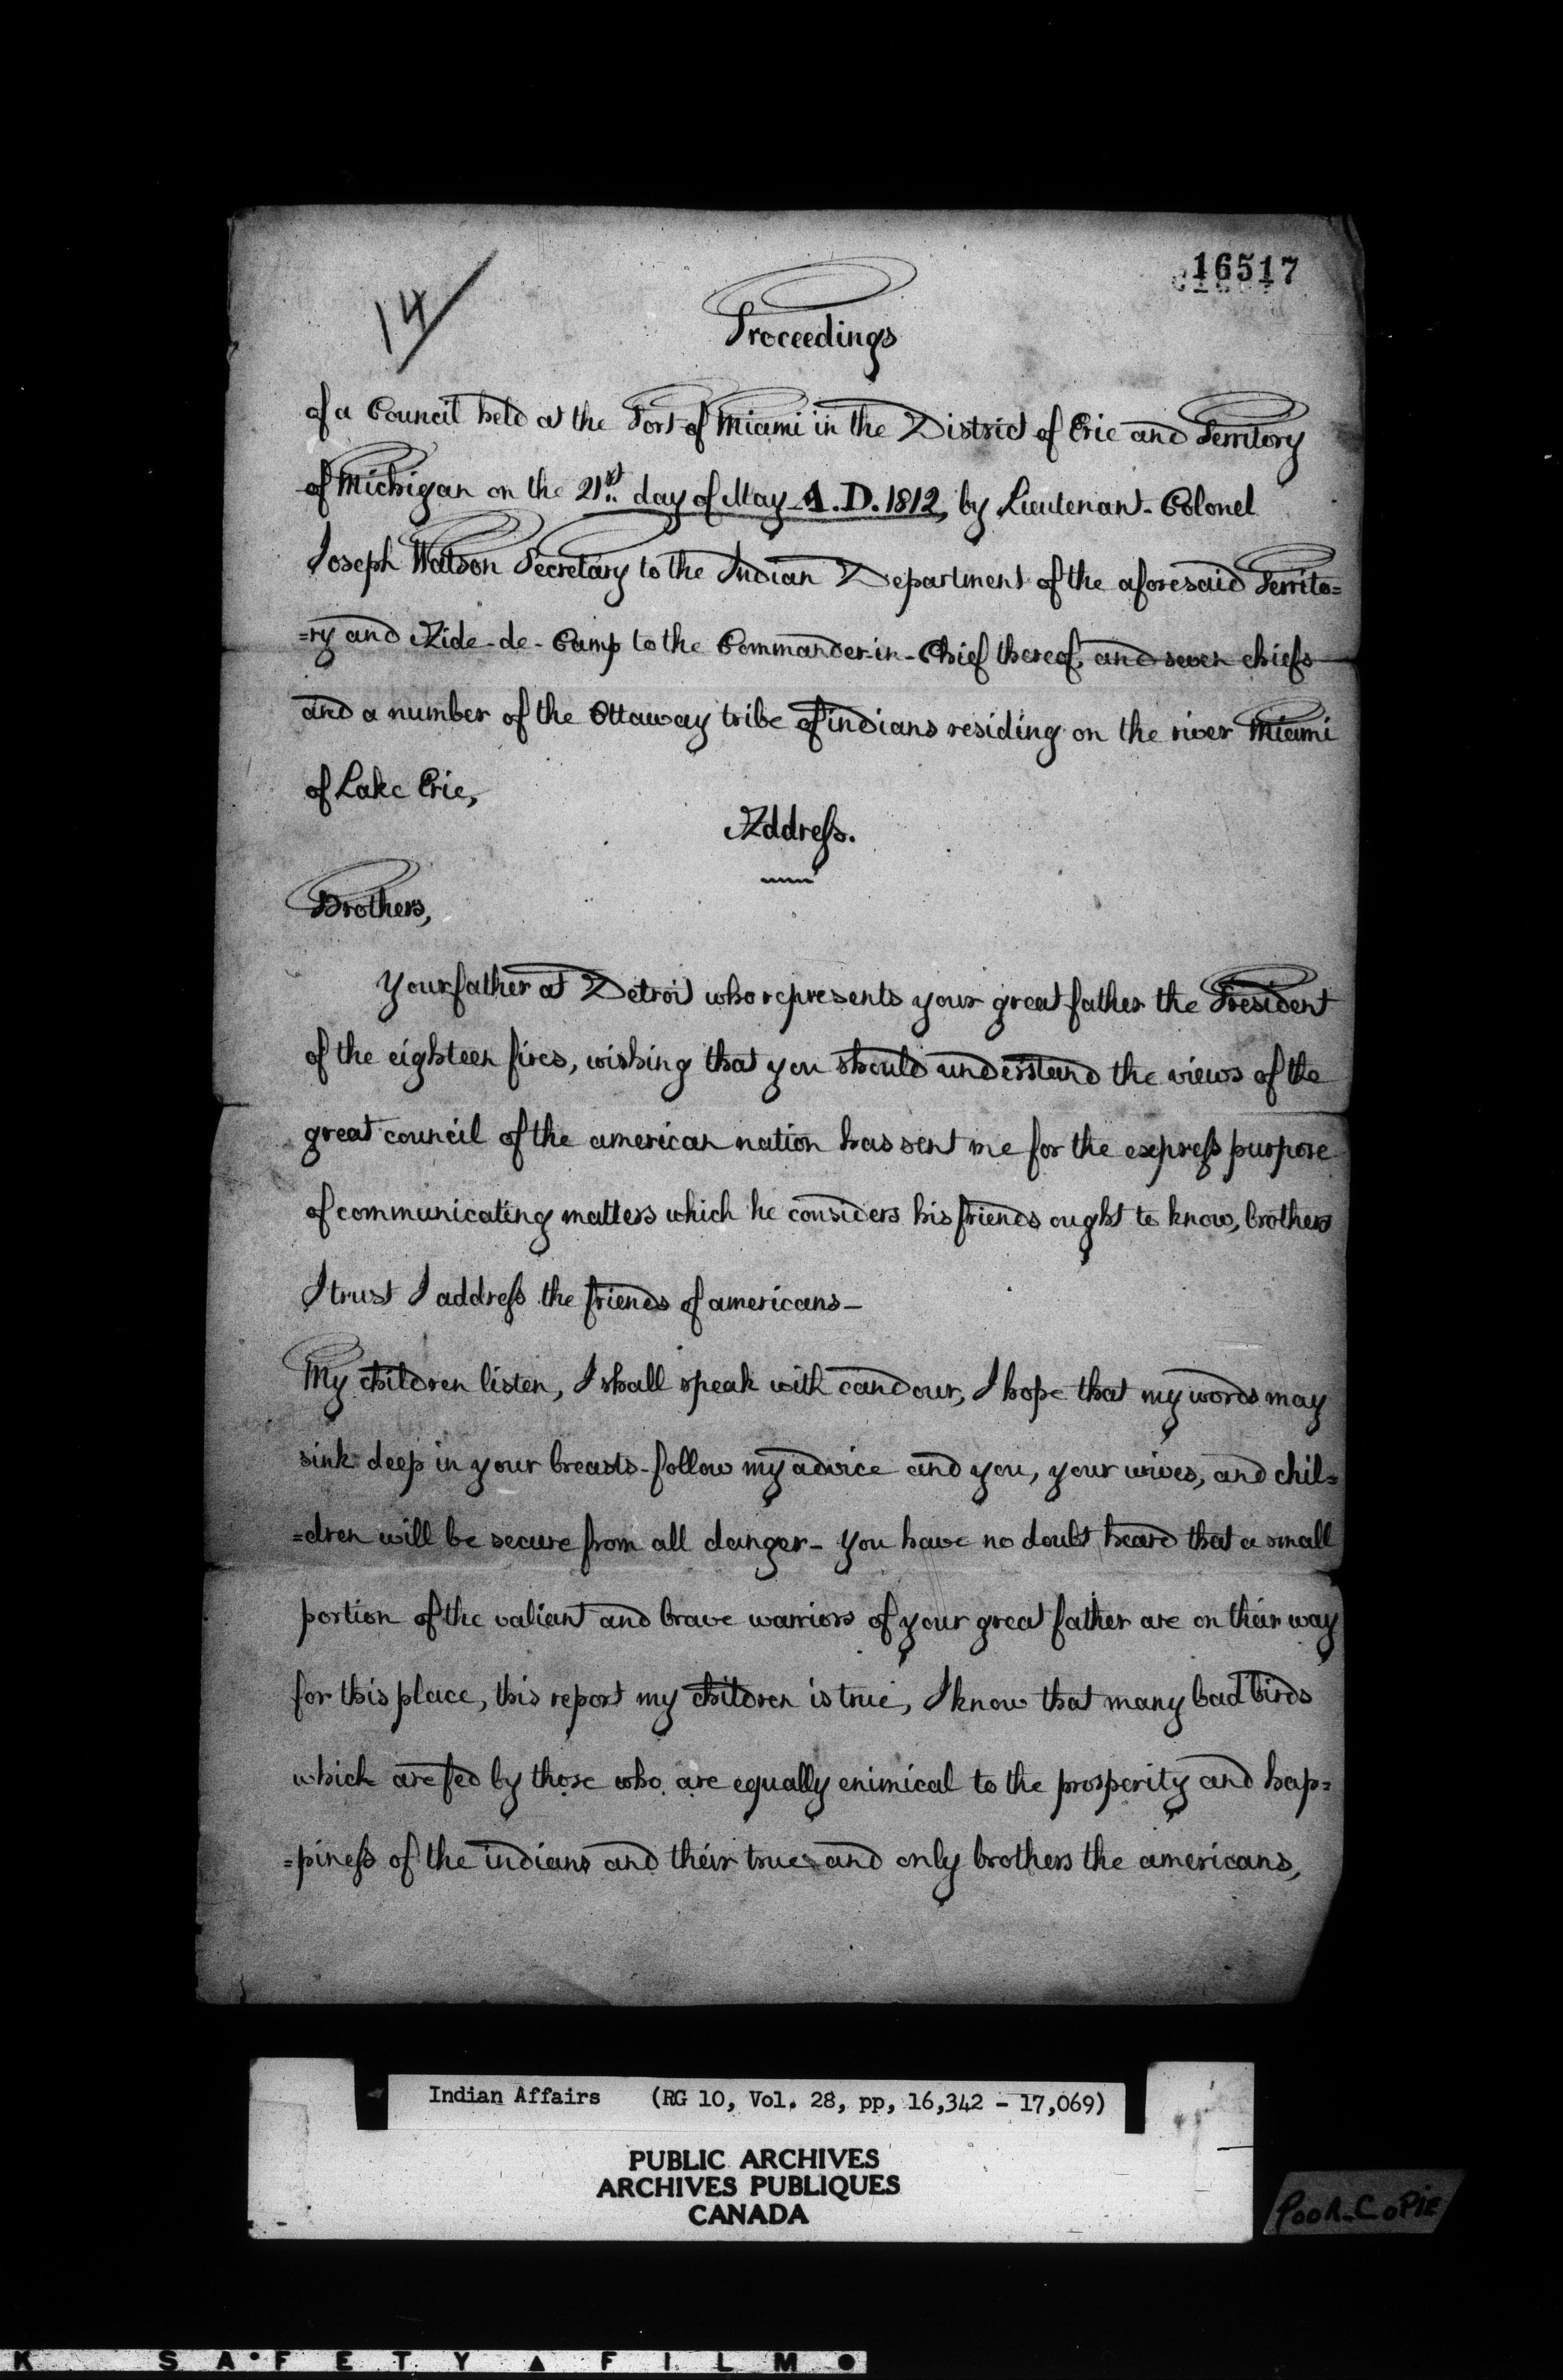 16517
14
Proceedings
of a Council held at the Port of Miami in the District of Erie and Territory
of Michigan on the 21st day of May A.D. 1812, by Lieutenant-Colonel
Joseph Watson Secretary to the Indian Department of the aforesaid Territo=
=ry and Aide-de-Camp to the Commander-in-Chief thereof, and seven chiefs
and a number of the Ottaway tribe of indians residing on the river Miami
of Lake Erie,
Address.
Brothers,
Your father at Detroit who represents your great father the President
of the eighteen fires, wishing that you should understand the views of the
great council of the american nation has sent me for the express purpose
of communicating matters which he considers his friends ought to know, brothers
I trust I address the friends of americans-
My children listen, I shall speak with candour, I hope that my words may
sink deep in your breasts-follow my advice and you, your wives, and chil=
=dren will be secure from all danger- you have no doubt heard that a small
portion of the valiant and brave warriors of your great father are on their way
for this place, this report my children is true, I know that many bad birds
which are fed by those who are equally enimical to the prosperity and hap=
=piness of the indians and their true and only brothers the americans,
Indian Affairs (RG 10, Vol. 28, pp, 16,342 - 17,069)
PUBLIC ARCHIVES
ARCHIVES PUBLIQUES
CANADA
POOR_COPIE
K SAFETY ▲ FILM ●